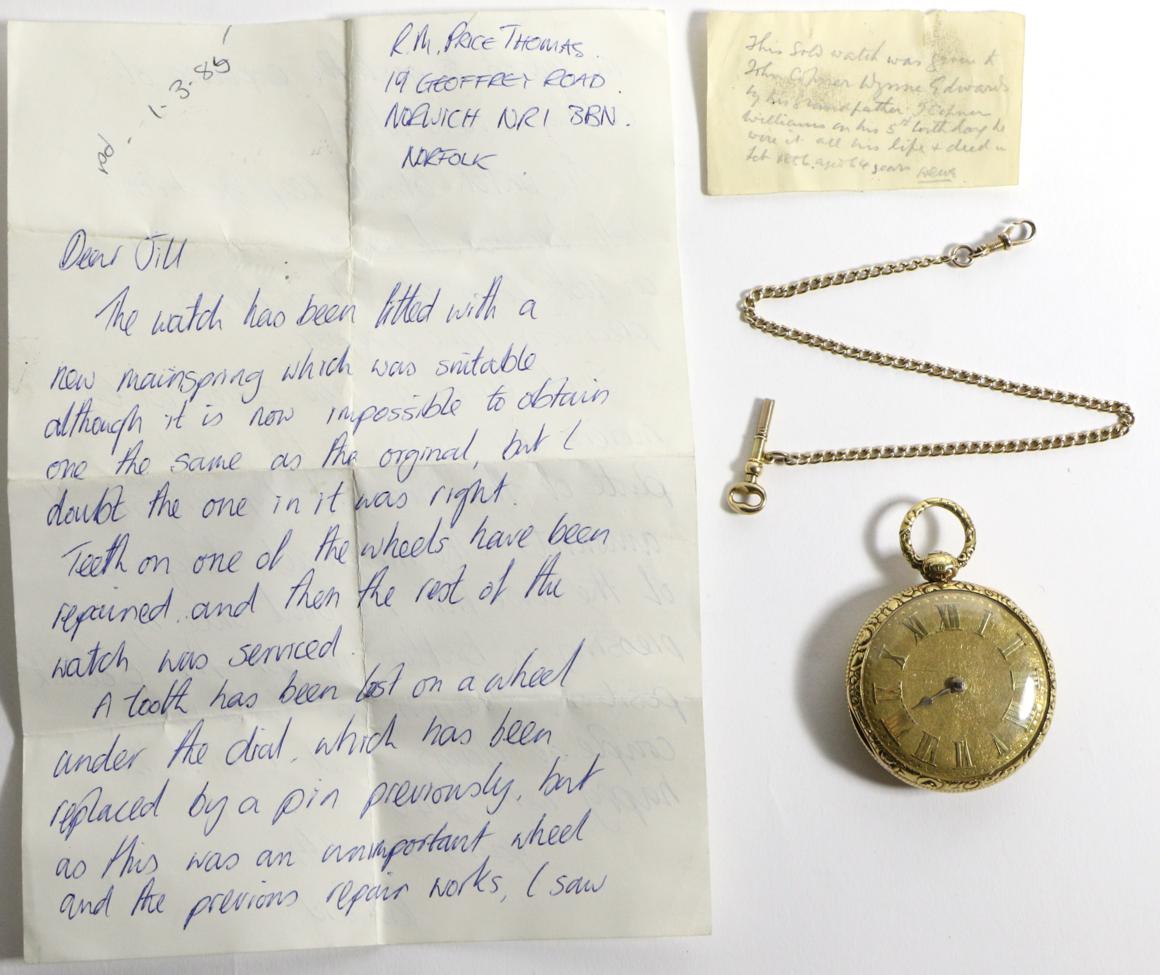 rcd - 1-3-85
R.M. PRICE THOMAS.
19 GEOFFREY ROAD.
NORWICH NR1 3BN.
NORFOLK
Dear Jill
The watch has been fitted with a
new mainspring which was suitable
although it is now impossible to obtain
one the same as the orginal, but I
doubt the one in it was right.
Teeth on one of the wheels have been
repaired and then the rest of the
watch was serviced.
A tooth has been lost on a wheel
under the dial, which has been
replaced by a pin previously, but
as this was an unimportant wheel
and the previous repair works, I saw
This Gold watch was given to
John Copner Wynne Edwards
by his Grandfather, J Copner
Williams on his 5th birthday he
wore it all his life & died in
aged 64 years
XII I II III VI VII VIII IX X XI